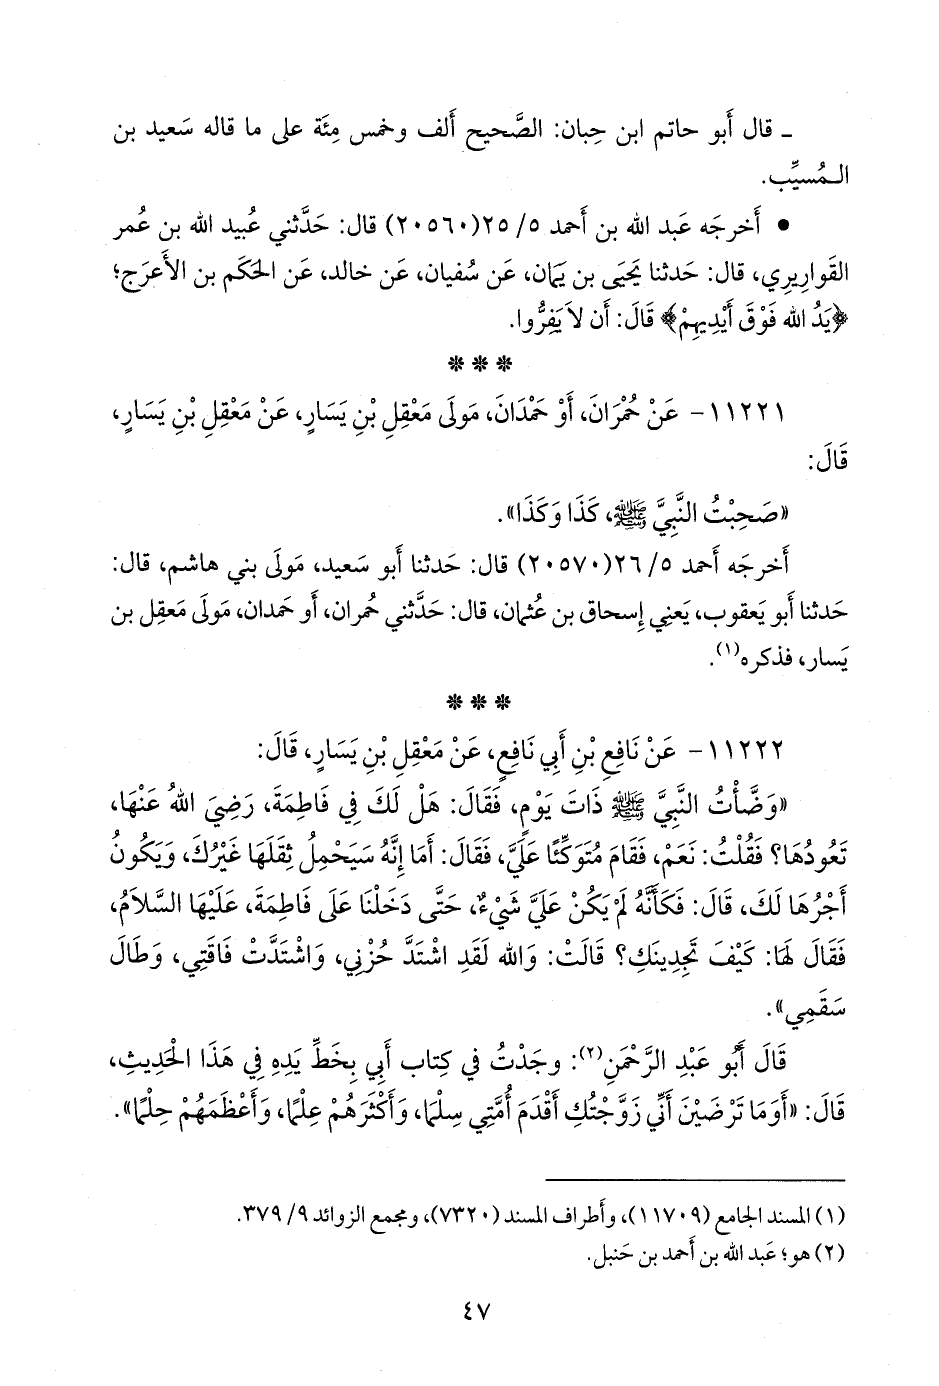 ـ قال أَبو حاتم ابن حِبان: الصَّحيح أَلف وخمس مِئَة على ما قاله سَعيد بن
الـمُسيِّب.
• أَخرجَه عَبد الله بن أَحمد ٥/ ٢٥(٢٠٥٦٠) قال: حَدَّثني عُبيد الله بن عُمر
القَوارِيري، قال: حَدثنا يَحيَى بن يَمان، عَن سُفيان، عَن خالد، عَن الحَكم بن الأَعرَج؛
﴿يَدُ الله فَوْقَ أَيْدِيهِمْ﴾ قَالَ: أَن لاَ يَفِرُّوا.
***
١١٢٢١- عَنْ حُمْرَانَ، أَوْ حَمْدَانَ، مَولَى مَعْقِلِ بْنِ يَسَارٍ، عَنْ مَعْقِلِ بْنِ يَسَارٍ،
قَالَ:
«صَحِبْتُ النَّبِيَّ ﷺ، كَذَا وَكَذَا».
أَخرجَه أَحمد ٥/ ٢٦(٢٠٥٧٠) قال: حَدثنا أَبو سَعيد، مَولَى بني هاشم، قال:
حَدثنا أَبو يَعقوب، يَعنِي إِسحاق بن عُثمان، قال: حَدَّثني حُمران، أَو حَمدان، مَولَى مَعقِل بن
يَسار، فذكره(١).
***
١١٢٢٢- عَنْ نَافِعِ بْنِ أَبِي نَافِعٍ، عَنْ مَعْقِلِ بْنِ يَسَارٍ، قَالَ:
«وَضَّأْتُ النَّبِيَّ ﷺ ذَاتَ يَوْمٍ، فَقَالَ: هَلْ لَكَ فِي فَاطِمَةَ، رَضِيَ اللهُ عَنْهَا،
تَعُودُهَا؟ فَقُلْتُ: نَعَمْ، فَقَامَ مُتَوَكِّئًا عَلَيَّ، فَقَالَ: أَمَا إِنَّهُ سَيَحْمِلُ ثِقَلَهَا غَيْرُكَ، وَيَكُونُ
أَجْرُهَا لَكَ، قَالَ: فَكَأَنَّهُ لَمْ يَكُنْ عَلَيَّ شَيْءٌ، حَتَّى دَخَلْنَا عَلَى فَاطِمَةَ، عَلَيْهَا السَّلاَمُ،
فَقَالَ لَهَا: كَيْفَ تَجِدِينَكِ؟ قَالَتْ: وَالله لَقَدِ اشْتَدَّ حُزْنِي، وَاشْتَدَّتْ فَاقَتِي، وَطَالَ
سَقَمِي».
قَالَ أَبُو عَبْدِ الرَّحْمَنِ(٢): وجَدْتُ فِي كِتاب أَبِي بِخَطِّ يَدِهِ فِي هَذَا الْحَدِيثِ،
قَالَ: «أَوَمَا تَرْضَيْنَ أَنِّي زَوَّجْتُكِ أَقْدَمَ أُمَّتِي سِلْمًا، وَأَكْثَرَهُمْ عِلْمًا، وَأَعْظَمَهُمْ حِلْمًا».
(١) المسند الجامع (١١٧٠٩)، وأَطراف المسند (٧٣٢٠)، ومجمع الزوائد ٩/ ٣٧٩.
(٢) هو؛ عَبد الله بن أَحمد بن حَنبل.
٤٧